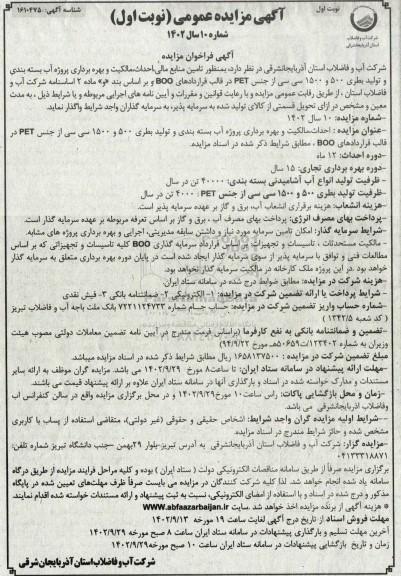 نوبت اول
شناسه آگهی: ۱۶۱۰۴۷۵
آگهی مزایده عمومی (نوبت اول)
شماره ۱۰ سال ۱۴۰۲
شرکت آب و فاضلاب استان آذربایجانشرقی
آگهی فراخوان مزایده
شرکت آب و فاضلاب استان آذربایجانشرقی در نظر دارد، بمنظور تامین منابع مالی، احداث، مالکیت و بهره برداری پروژه آب بسته بندی
و تولید بطری ۵۰۰ و ۱۵۰۰ سی سی از جنس PET در قالب قراردادهای BOO و بر اساس بند «و» ماده ۲ اساسنامه شرکت آب و
فاضلاب استان ، از طریق رقابت عمومی مزایده و با رعایت قوانین و مقررات و آیین نامه های اجرایی مربوطه و با شرایط ذیل ، به مدت
معین و مشخص در ازای تحویل قسمتی از کالای تولید شده به سرمایه پذیر، به سرمایه گذاران واجد شرایط واگذار نماید.
-شماره مزایده: ۱۰ سال ۱۴۰۲
-عنوان مزایده : احداث، مالکیت و بهره برداری پروژه آب بسته بندی و تولید بطری ۵۰۰ و ۱۵۰۰ سی سی از جنس PET در
قالب قراردادهای BOO ، مطابق شرایط ذکر شده در اسناد مزایده.
-دوره احداث: ۱۲ ماه
-دوره بهره برداری تجاری: ۱۵ سال
- ظرفیت تولید انواع آب آشامیدنی بسته بندی: ۴۰۰۰۰ تن در سال
- ظرفیت تولید بطری ۵۰۰ و ۱۵۰۰ سی سی از جنس PET : ۴۰۰۰ تن در سال
-هزینه انشعاب: هزینه برقراری انشعاب آب، برق و گاز بر عهده سرمایه پذیر است.
-پرداخت بهای مصرف انرژی: پرداخت بهای مصرف آب ، برق و گاز بر اساس تعرفه مربوطه بر عهده سرمایه گذار است.
-شرایط سرمایه گذار: امکان تأمین سرمایه مورد نیاز و داشتن سابقه مدیریتی، اجرایی و بهره برداری پروژه های مشابه.
- مالکیت مستحدثات ، تاسیسات و تجهیزات: بر اساس قرارداد سرمایه گذاری BOO کلیه تاسیسات و تجهیزاتی که بر اساس
مطالعات فنی و توافق با سرمایه پذیر از سوی سرمایه گذار ایجاد شده است در پایان دوره بهره برداری متعلق به سرمایه گذار
خواهد بود. در این پروژه ملک کارخانه در مالکیت سرمایه گذار نخواهد بود.
-هزینه شرکت در مزایده: مطابق ضوابط درج شده در سامانه ستاد ایران.
- شرایط پرداخت یا ارائه تضمین شرکت در مزایده: ۱- الکترونیکی ۲- ضمانتنامه بانکی ۳- فیش نقدی
- شماره حساب واریز تضمین شرکت در مزایده: حساب جام شماره ۷۲۲۱۱۲۴۷۳۳ بانک ملت باجه آب و فاضلاب تبریز
( کد شعبه ۱۳۴۲/۵ )
-تضمین و ضمانتنامه بانکی به نفع کارفرما (براساس فرمت مندرج در آیین نامه تضمین معاملات دولتی مصوب هیئت
وزیران به شماره ۱۲۳۴۰۲/ت۵۰۶۵۹هـ مورخ ۹۴/۹/۲۲)
مبلغ تضمین شرکت در مزایده : ۱۶۵۸۱۳۷۵۰۰ ریال مطابق شرایط ذکر شده در اسناد مزایده میباشد.
-مهلت ارائه پیشنهاد در سامانه ستاد ایران: تا ساعت۸ مورخ ۱۴۰۲/۹/۲۹ می باشد. مزایده گران موظف به ارائه سایر
مستندات و مدارک خواسته شده در اسناد و بارگذاری آنها در سامانه ستاد ایران علاوه بر ارائه پیشنهاد قیمت می باشند.
-زمان و محل بازگشایی پاکات: راس ساعت۱۰ مورخ۱۴۰۲/۹/۲۹ و در محل برگزاری مزایده واقع در سالن کنفرانس آب
وفاضلاب آذربایجانشرقی می باشد.
--شرایط اولیه مزایده گران واجد شرایط: اشخاص حقیقی و حقوقی (غیر دولتی)، متقاضی استفاده از پساب با کاربری
مشخص شده و حائز شرایط مندرج در اسناد مزایده
-مزایده گزار: شرکت آب و فاضلاب استان آذربایجانشرقی به آدرس تبریز-بلوار ۲۹بهمن -جنب دانشگاه تبریز شماره تلفن:
۰۴۱۳۳۳۱۸۸۷۱
برگزاری مزایده صرفا از طریق سامانه مناقصات الکترونیکی دولت ( ستاد ایران ) بوده و کلیه مراحل فرایند مزایده از طریق درگاه
سامانه یاد شده انجام خواهد شد. لذا کلیه شرکت کنندگان در مزایده می بایست صرفا ظرف مهلت‌های تعیین شده در پایگاه
مذکور و درج شده در اسناد و با استفاده از امضای الکترونیکی، نسبت به ثبت پیشنهاد و ارائه مستندات خواسته شده اقدام نمایند.
* هزینه آگهی از برنده مزایده اخذ خواهد شد .سایت www.abfaazarbaijan.ir
مهلت فروش اسناد از تاریخ درج آگهی لغایت ساعت ۱۹ مورخه ۱۴۰۲/۹/۱۳
آخرین مهلت تسلیم و بارگذاری پیشنهادات در سامانه ستاد ایران ساعت ۸ صبح مورخه ۱۴۰۲/۹/۲۹
زمان و تاریخ بازگشایی پیشنهادات در سامانه ستاد ایران ساعت ۱۰ صبح مورخه۱۴۰۲/۹/۲۹
شرکت آب و فاضلاب استان آذربایجان شرقی